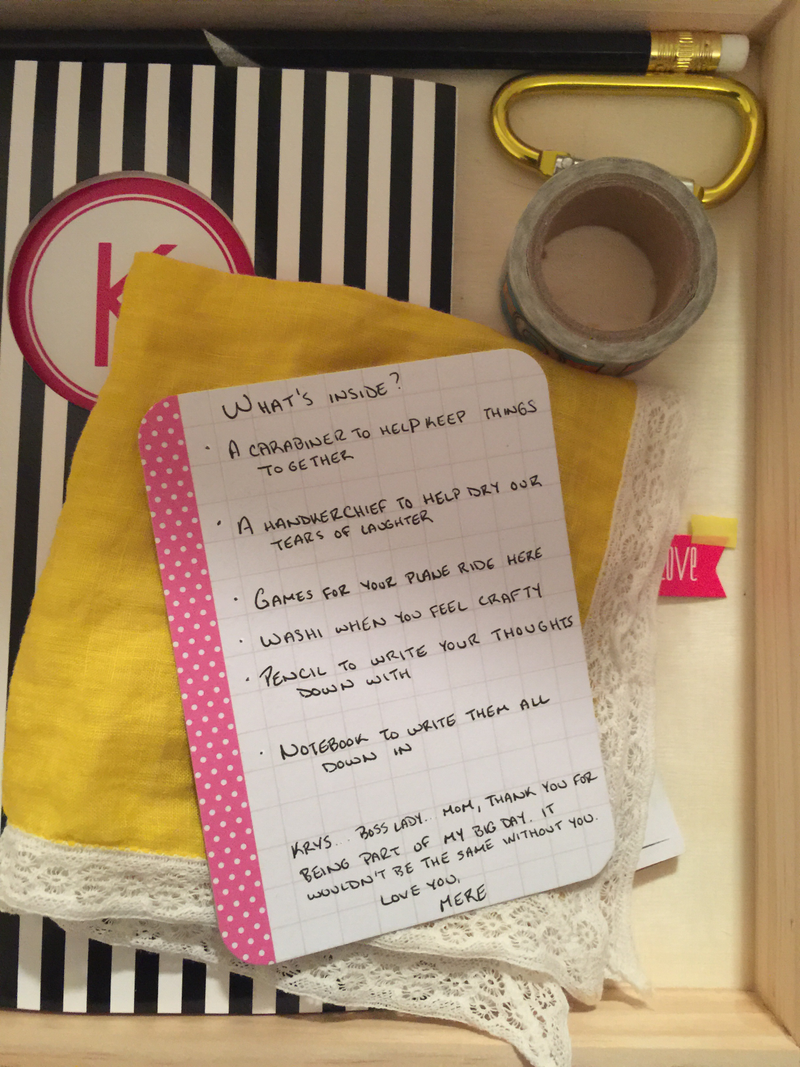 K
WHAT'S INSIDE?
• A CARABINER TO HELP KEEP THINGS
TOGETHER
• A HANDKERCHIEF TO HELP DRY OUR
TEARS OF LAUGHTER
• GAMES FOR YOUR PLANE RIDE HERE
• WASHI WHEN YOU FEEL CRAFTY
• PENCIL TO WRITE YOUR THOUGHTS
DOWN WITH
• NOTEBOOK TO WRITE THEM ALL
DOWN IN
KRYS... BOSS LADY... MOM, THANK YOU FOR
BEING PART OF MY BIG DAY. IT
WOULDN'T BE THE SAME WITHOUT YOU.
LOVE YOU,
MERE
LOVE